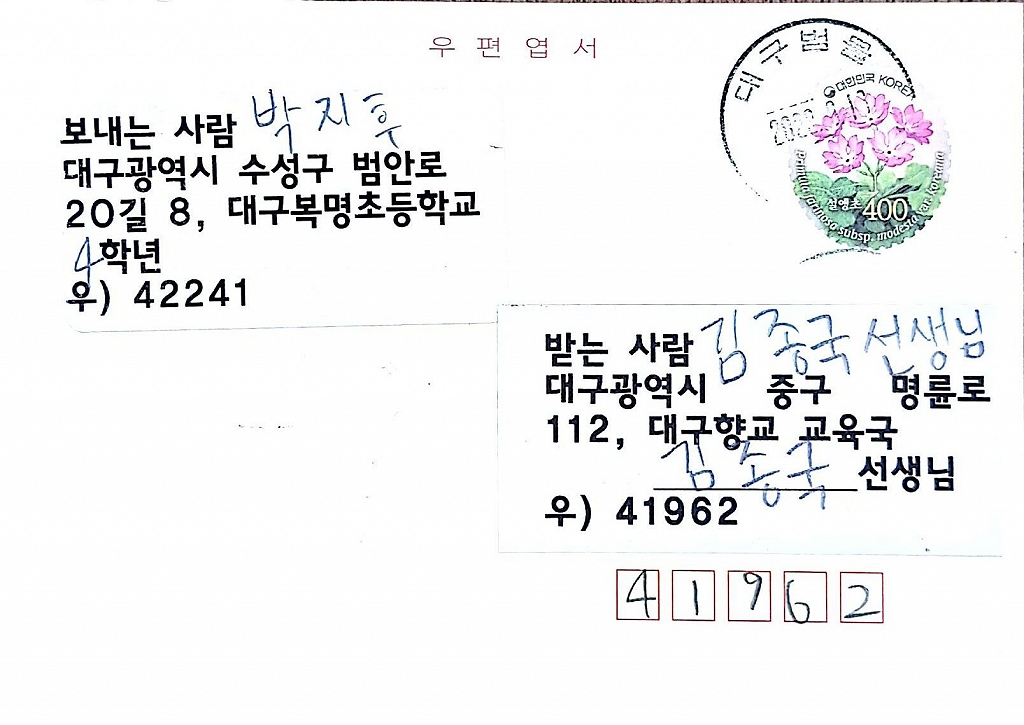 우편엽서
대구범물
대한민국 KOREA
설앵초 400
Primula farinosa subsp. modesta var. koreana
보내는 사람 박지후
대구광역시 수성구 범안로
20길 8, 대구복명초등학교
4학년
우) 42241
받는 사람 김종국선생님
대구광역시 중구 명륜로
112, 대구향교 교육국
김종국 선생님
우) 41962
41962